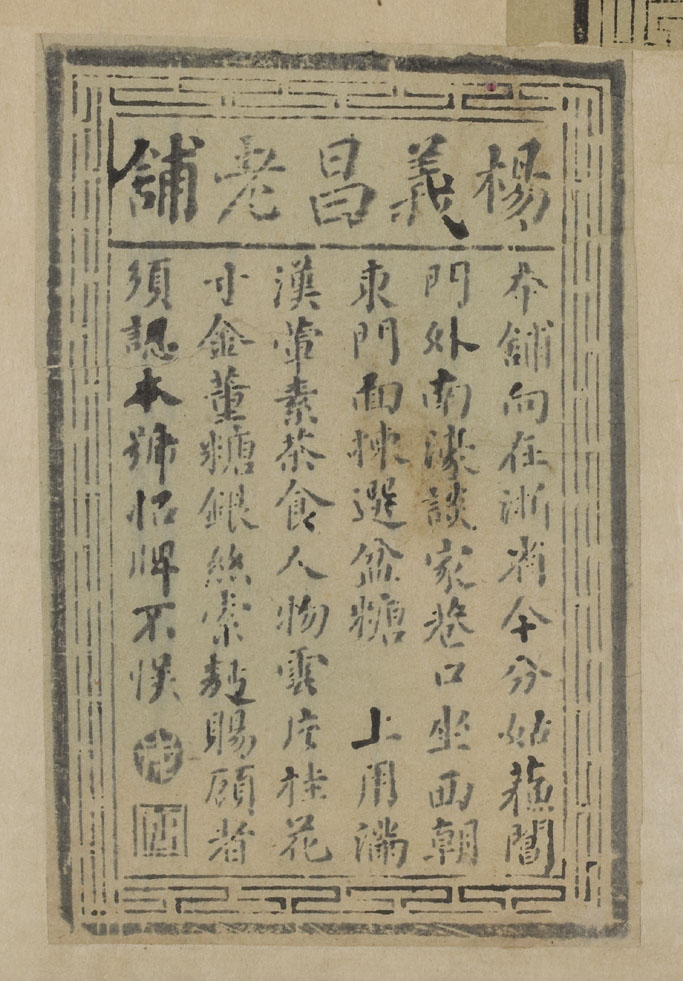 楊義昌老舖
本舖向在浙省今分姑蘇閶
門外南濠談家巷口坐西朝
東門面揀選盆糖　上用滿
漢葷素茶食人物雲片桂花
寸金董糖銀絲索麪賜顧者
須認本號招牌不悞